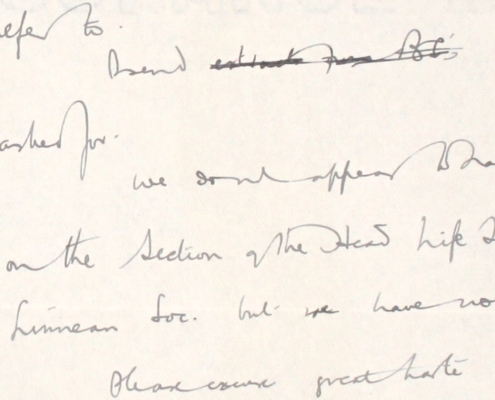 refer to.
I send extract from BC's
asked for.
we do not appear to ha
on the Section of the Head Life
Linnean Soc. but we have no
Please excuse great haste